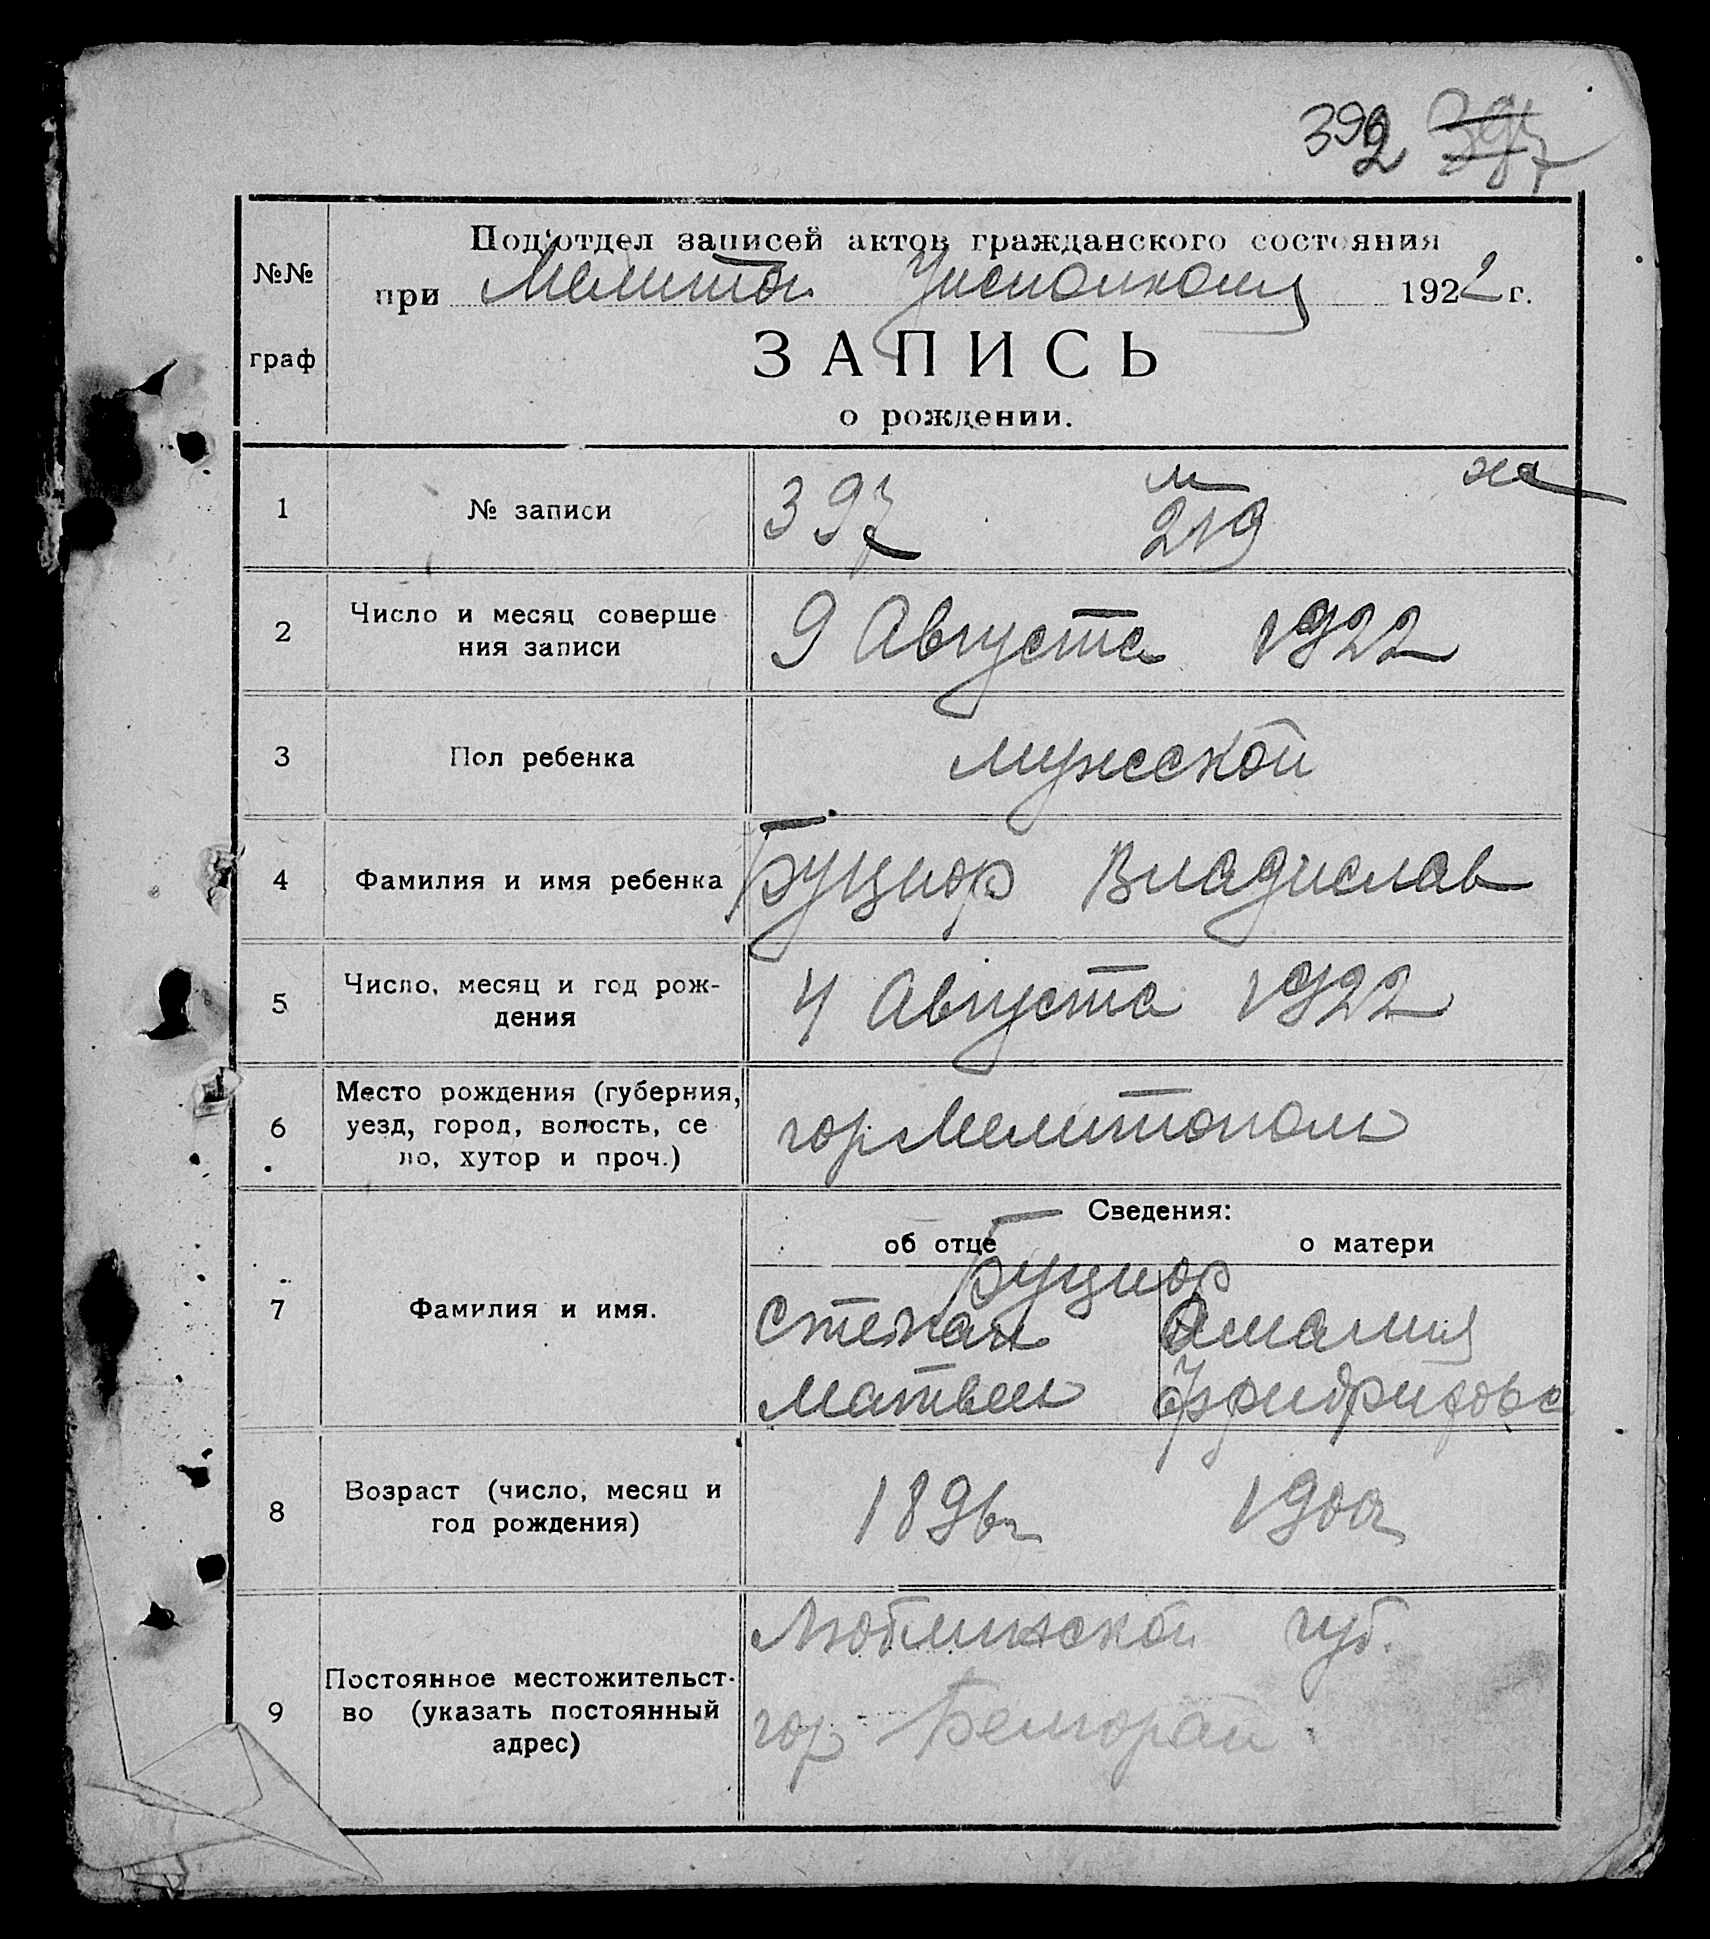 392 397
№№ граф
Под'отдел записей актов гражданского состояния
при Мелитоп. Уисполкома 1922 г.
ЗАПИСЬ
о рождении.
1 № записи 397 м 219 ж
2 Число и месяц соверше
ния записи 9 Августа 1922
3 Пол ребенка мужской
4 Фамилия и имя ребенка Буциор Владислав
5 Число, месяц и год рож-
дения 4 Августа 1922
6 Место рождения (губерния,
уезд, город, волость, се
ло, хутор и проч.) гор Мелитополь
Сведения:
об отце о матери
7 Фамилия и имя. Буциор
Степан Амалия
Матвеев Фридрихова
8 Возраст (число, месяц и
год рождения) 1896 г 1900 г
9 Постоянное местожительст-
во (указать постоянный
адрес)
Люблинской губ.
гор Белгорай